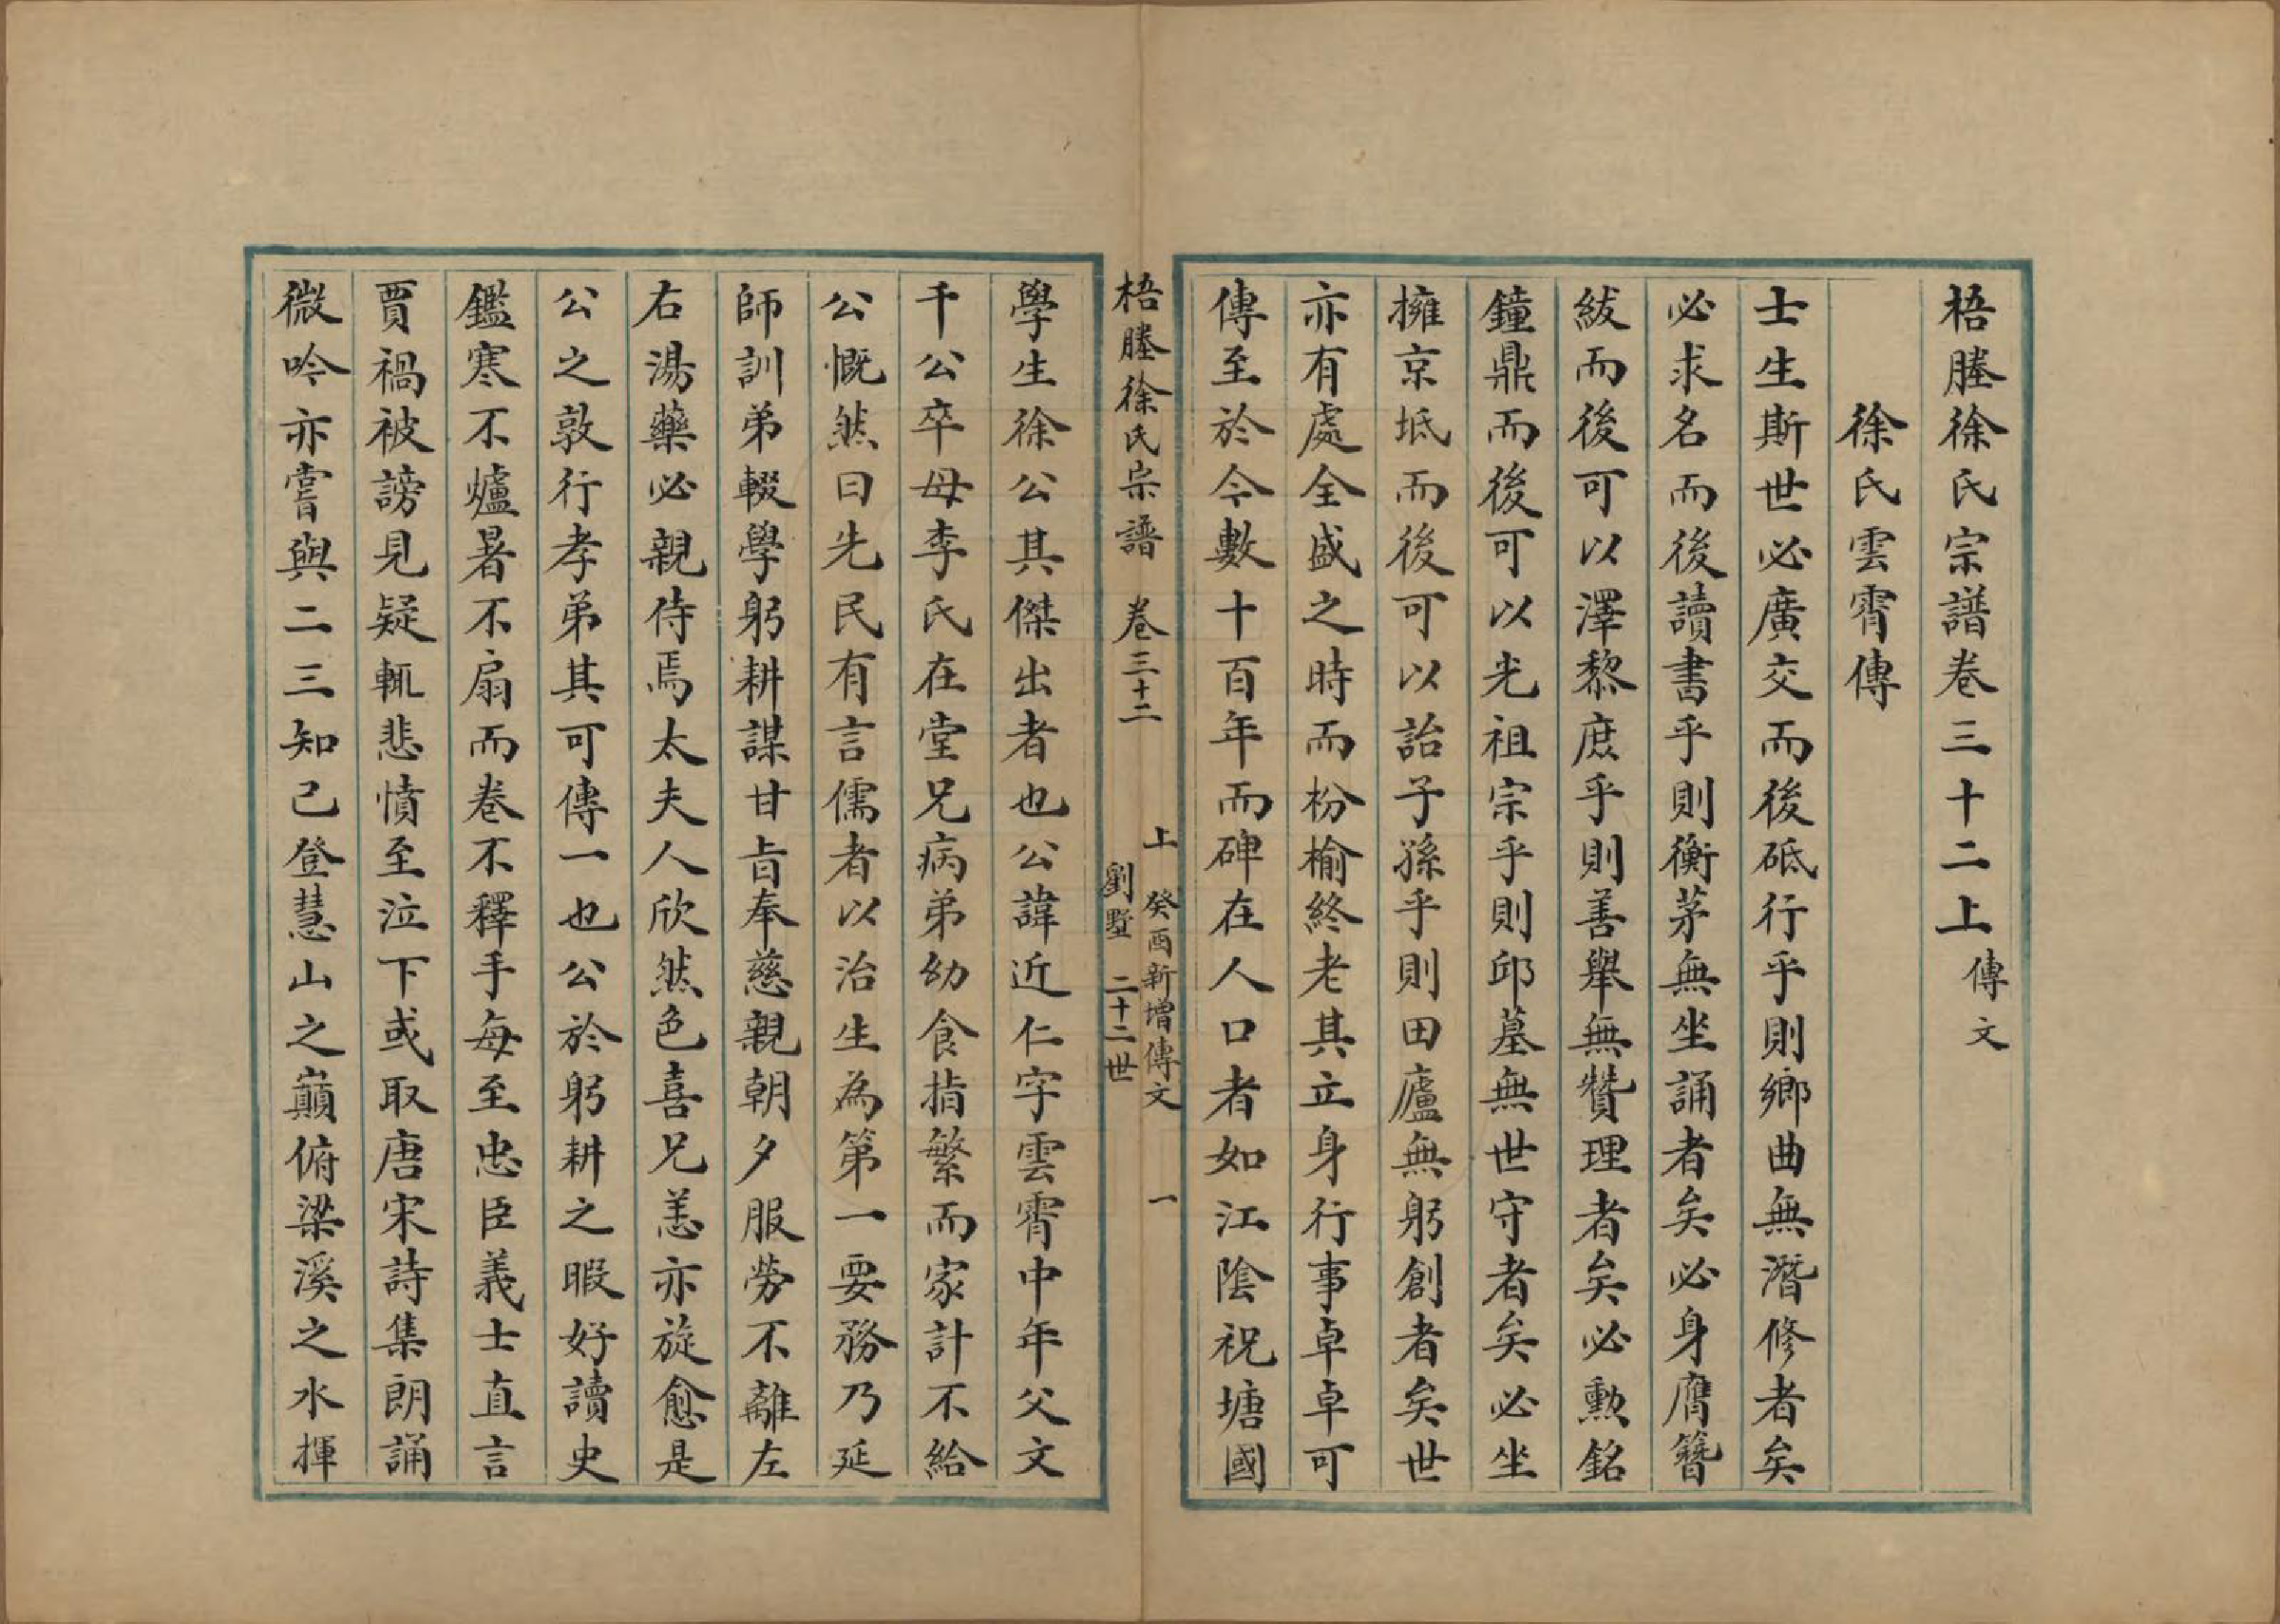 梧塍徐氏宗譜卷三十二上 傳文
徐氏雲霄傳
士生斯世必廣交而後砥行乎則鄉曲無潛修者矣
必求名而後讀書乎則衡茅無坐誦者矣必身膺簪
紱而後可以澤黎庶乎則善舉無贊理者矣必勳銘
鐘鼎而後可以光祖宗乎則邱墓無世守者矣必坐
擁京坻而後可以詒子孫乎則田廬無躬創者矣世
亦有處全盛之時而枌榆終老其立身行事卓卓可
傳至於今數十百年而碑在人口者如江陰祝塘國
梧塍徐氏宗譜 卷三十二 上 癸酉新增傳文 劉墅 二十二世 一
學生徐公其傑出者也公諱近仁字雲霄中年父文
千公卒母李氏在堂兄病弟幼食指繁而家計不給
公慨然曰先民有言儒者以治生為第一要務乃延
師訓弟輟學躬耕謀甘旨奉慈親朝夕服勞不離左
右湯藥必親侍焉太夫人欣然色喜兄恙亦旋愈是
公之敦行孝弟其可傳一也公於躬耕之暇好讀史
鑑寒不爐暑不扇而卷不釋手每至忠臣義士直言
賈禍被謗見疑輒悲憤至泣下或取唐宋詩集朗誦
微吟亦嘗與二三知己登慧山之巔俯梁溪之水揮